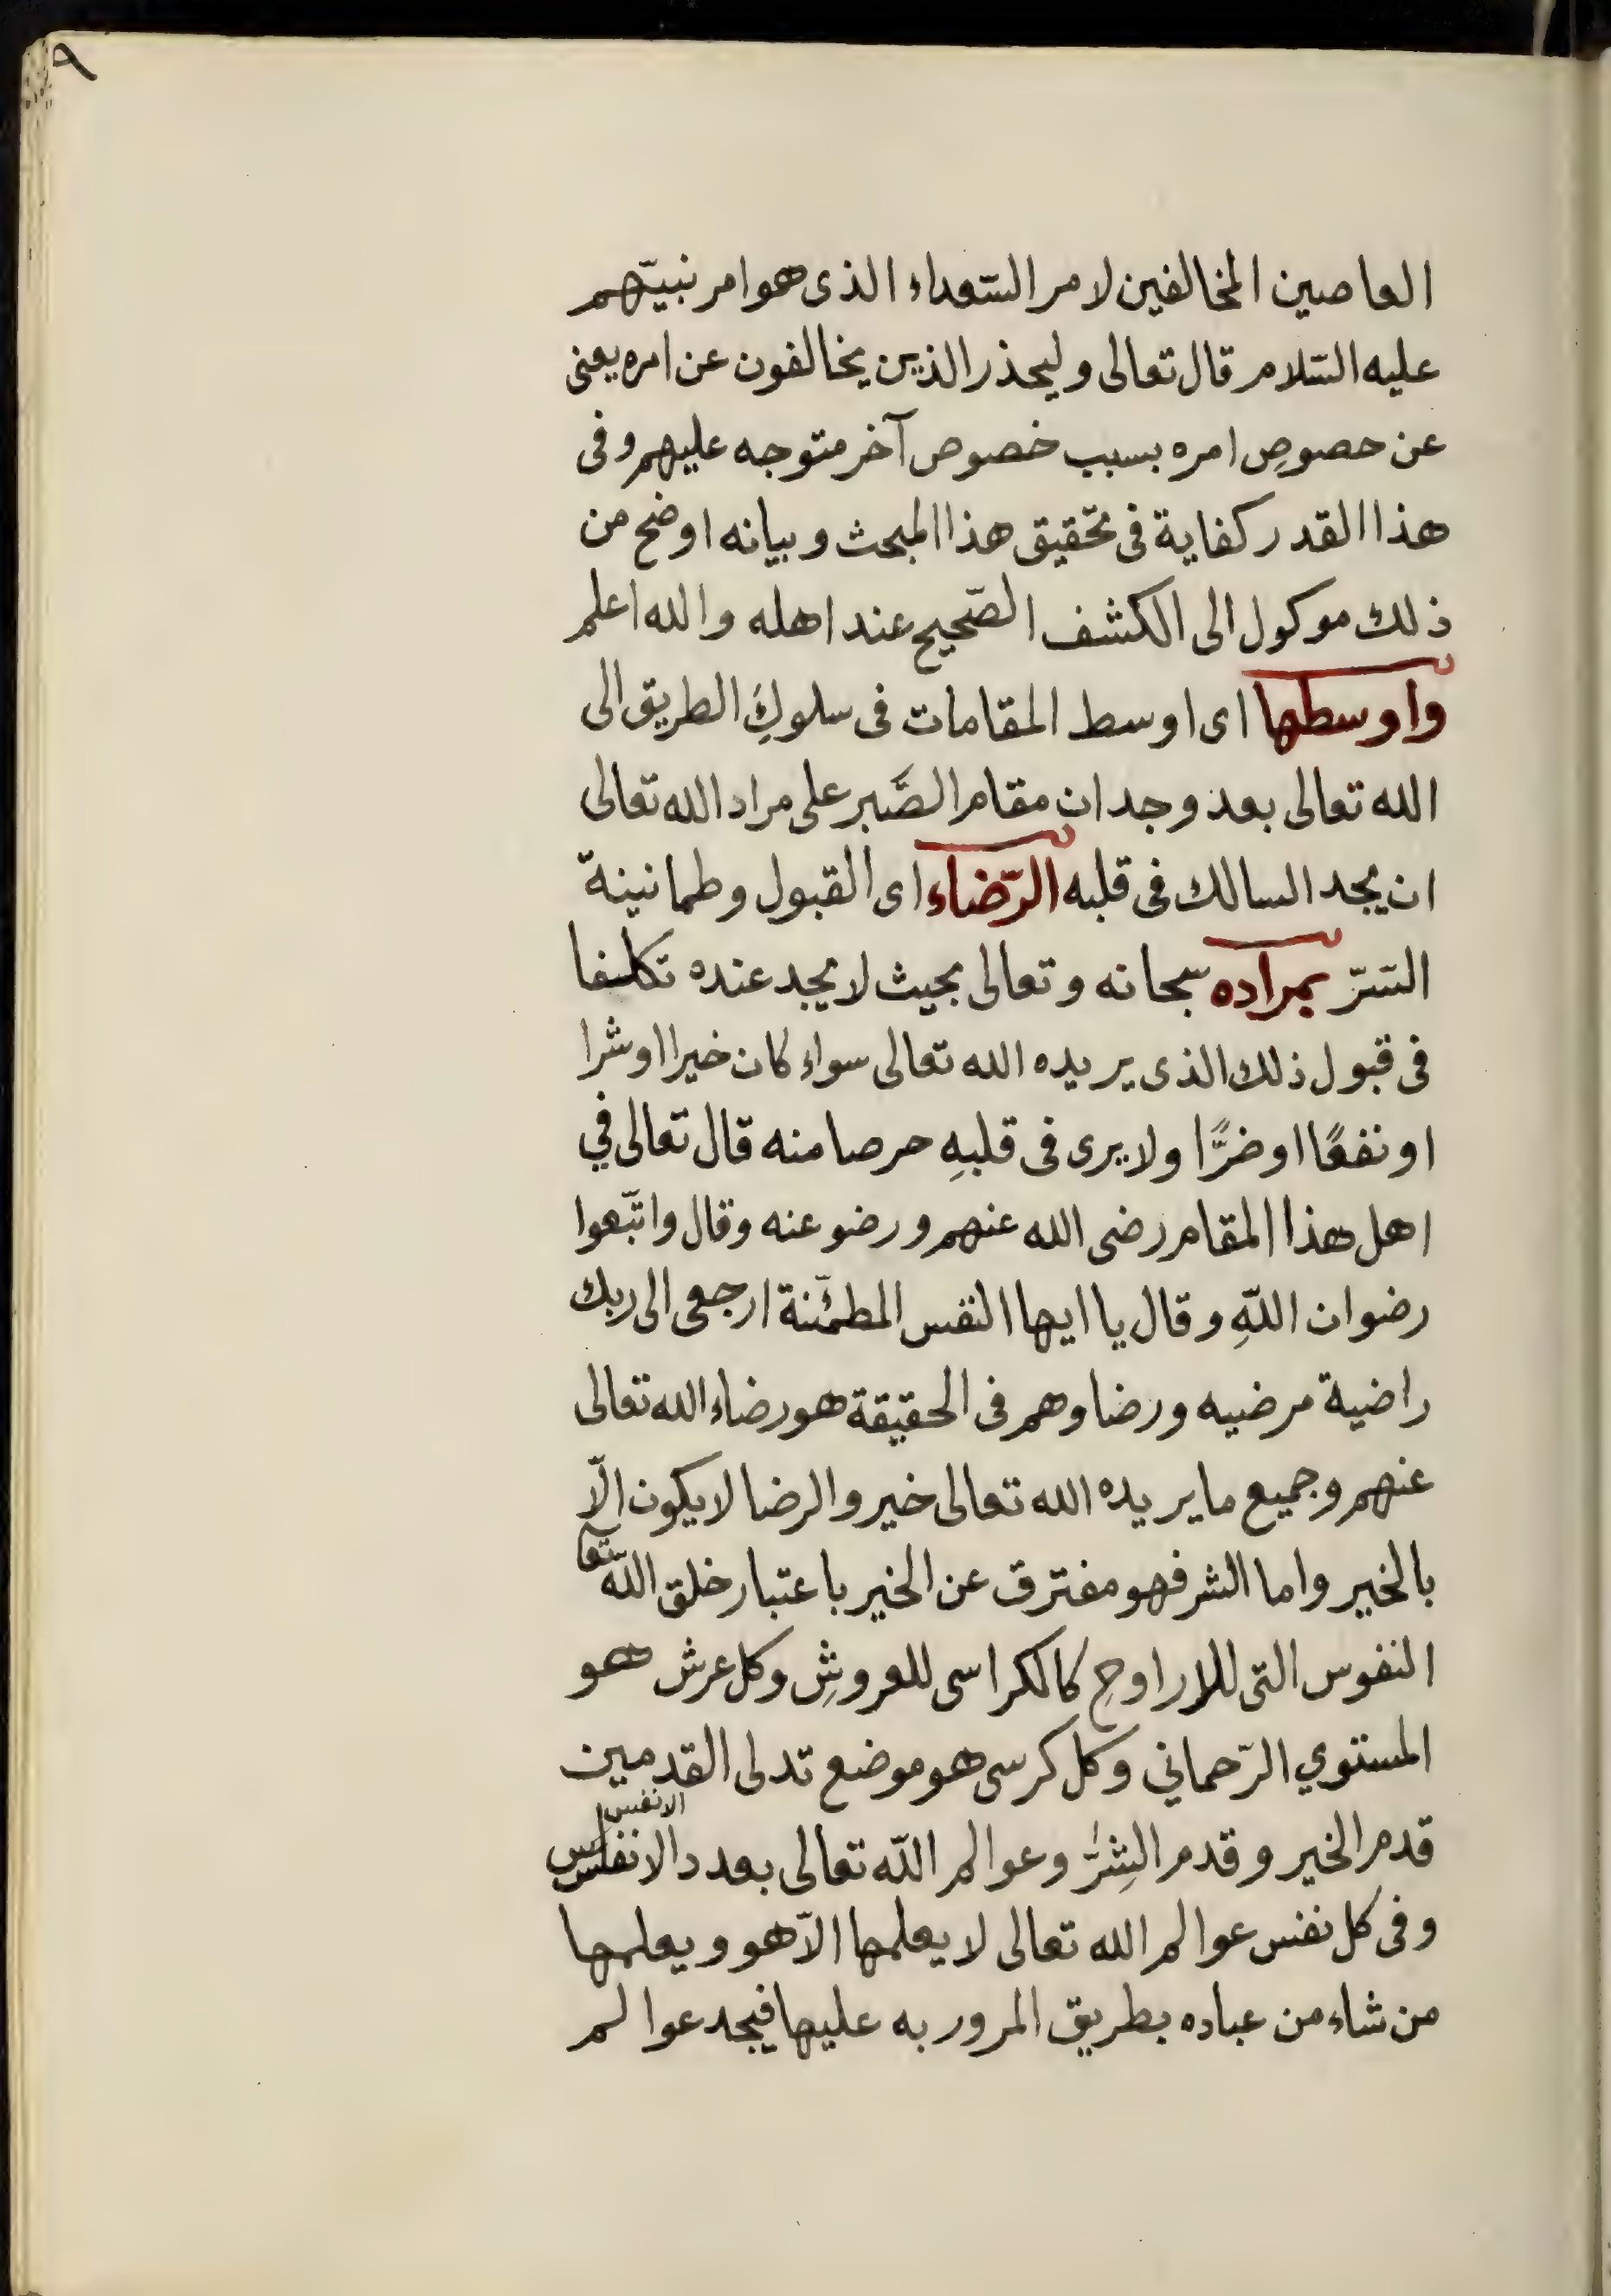 ٩
العاصين المخالفين لامر السّعداء الذى هو امر نبيّهم
عليه السّلام قال تعالى وليحذر الذين يخالفون عن امره يعنى
عن حصوصِ امره بسبب خصوص آخر متوجه عليهم وفى
هذا القدر كفاية فى تحّقيق هذا المبحث وبيانه اوضح من
ذلك موكول الى الكشف الصّحيح عند اهله والله اعلم
واوسطها اى اوسط المقامات فى سلوكِ الطريق الى
الله تعالى بعد وجدان مقام الصَّبر على مراد الله تعالى
ان يجد السالك فى قلبه الرّضاء اى القبول وطمانينة
السّرّ بمراده سبحانه وتعالى بحيث لا يجد عنده تكلفا
فى قبول ذلك الذى يريده الله تعالى سواء كان خيرا اوشرا
او نفعًا اوضرًّا ولا يرى فى قلبهِ حرصا منه قال تعالى في
اهل هذا المقام رضى الله عنهم ورضو عنه وقال واتّبعوا
رضوان اللّهِ وقال يا ايها النفس المطمئنّة ارجعى الى ربك
راضية مرضيه ورضاوهم فى الحقيقة هو رضاء الله تعالى
عنهم وجميع ما يريده الله تعالى خير والرضا لا يكون الّا
بالخير واما الشر فهو مفترق عن الخير باعتبار خلق اللّه تعا
النفوس التى للاراوحِ كالكراسى للعروشِ وكل عرش هو
المستوي الرّحماني وكل كرسى هو موضع تدلى القدمين
قدم الخير وقدم الشِرّ وعوالم اللّه تعالى بعدد الانفس
الانفس
وفى كل نفس عوالم الله تعالى لا يعلمها الّا هو ويعلمها
من شاء من عباده بطريق المرور به عليها فيجد عوالم